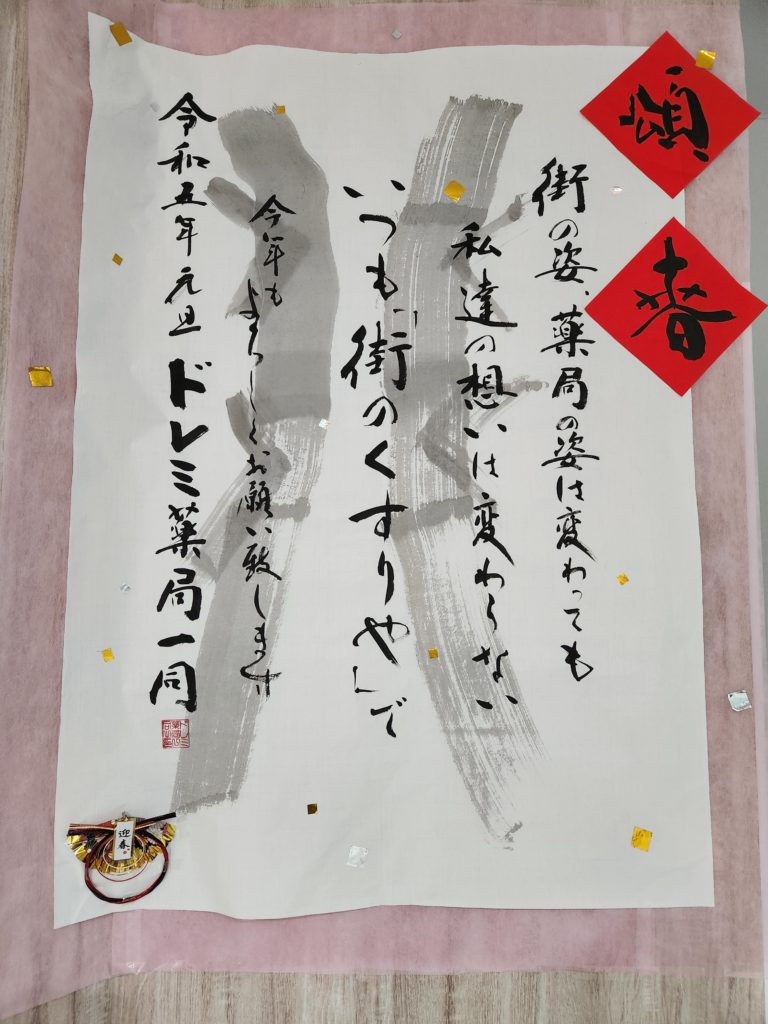 頌
春
街の姿、薬局の姿は変わっても
私達の想いは変わらない
いつも「街のくすりや」で
今年もよろしくお願い致します
令和五年元旦 ドレミ薬局一同
迎春